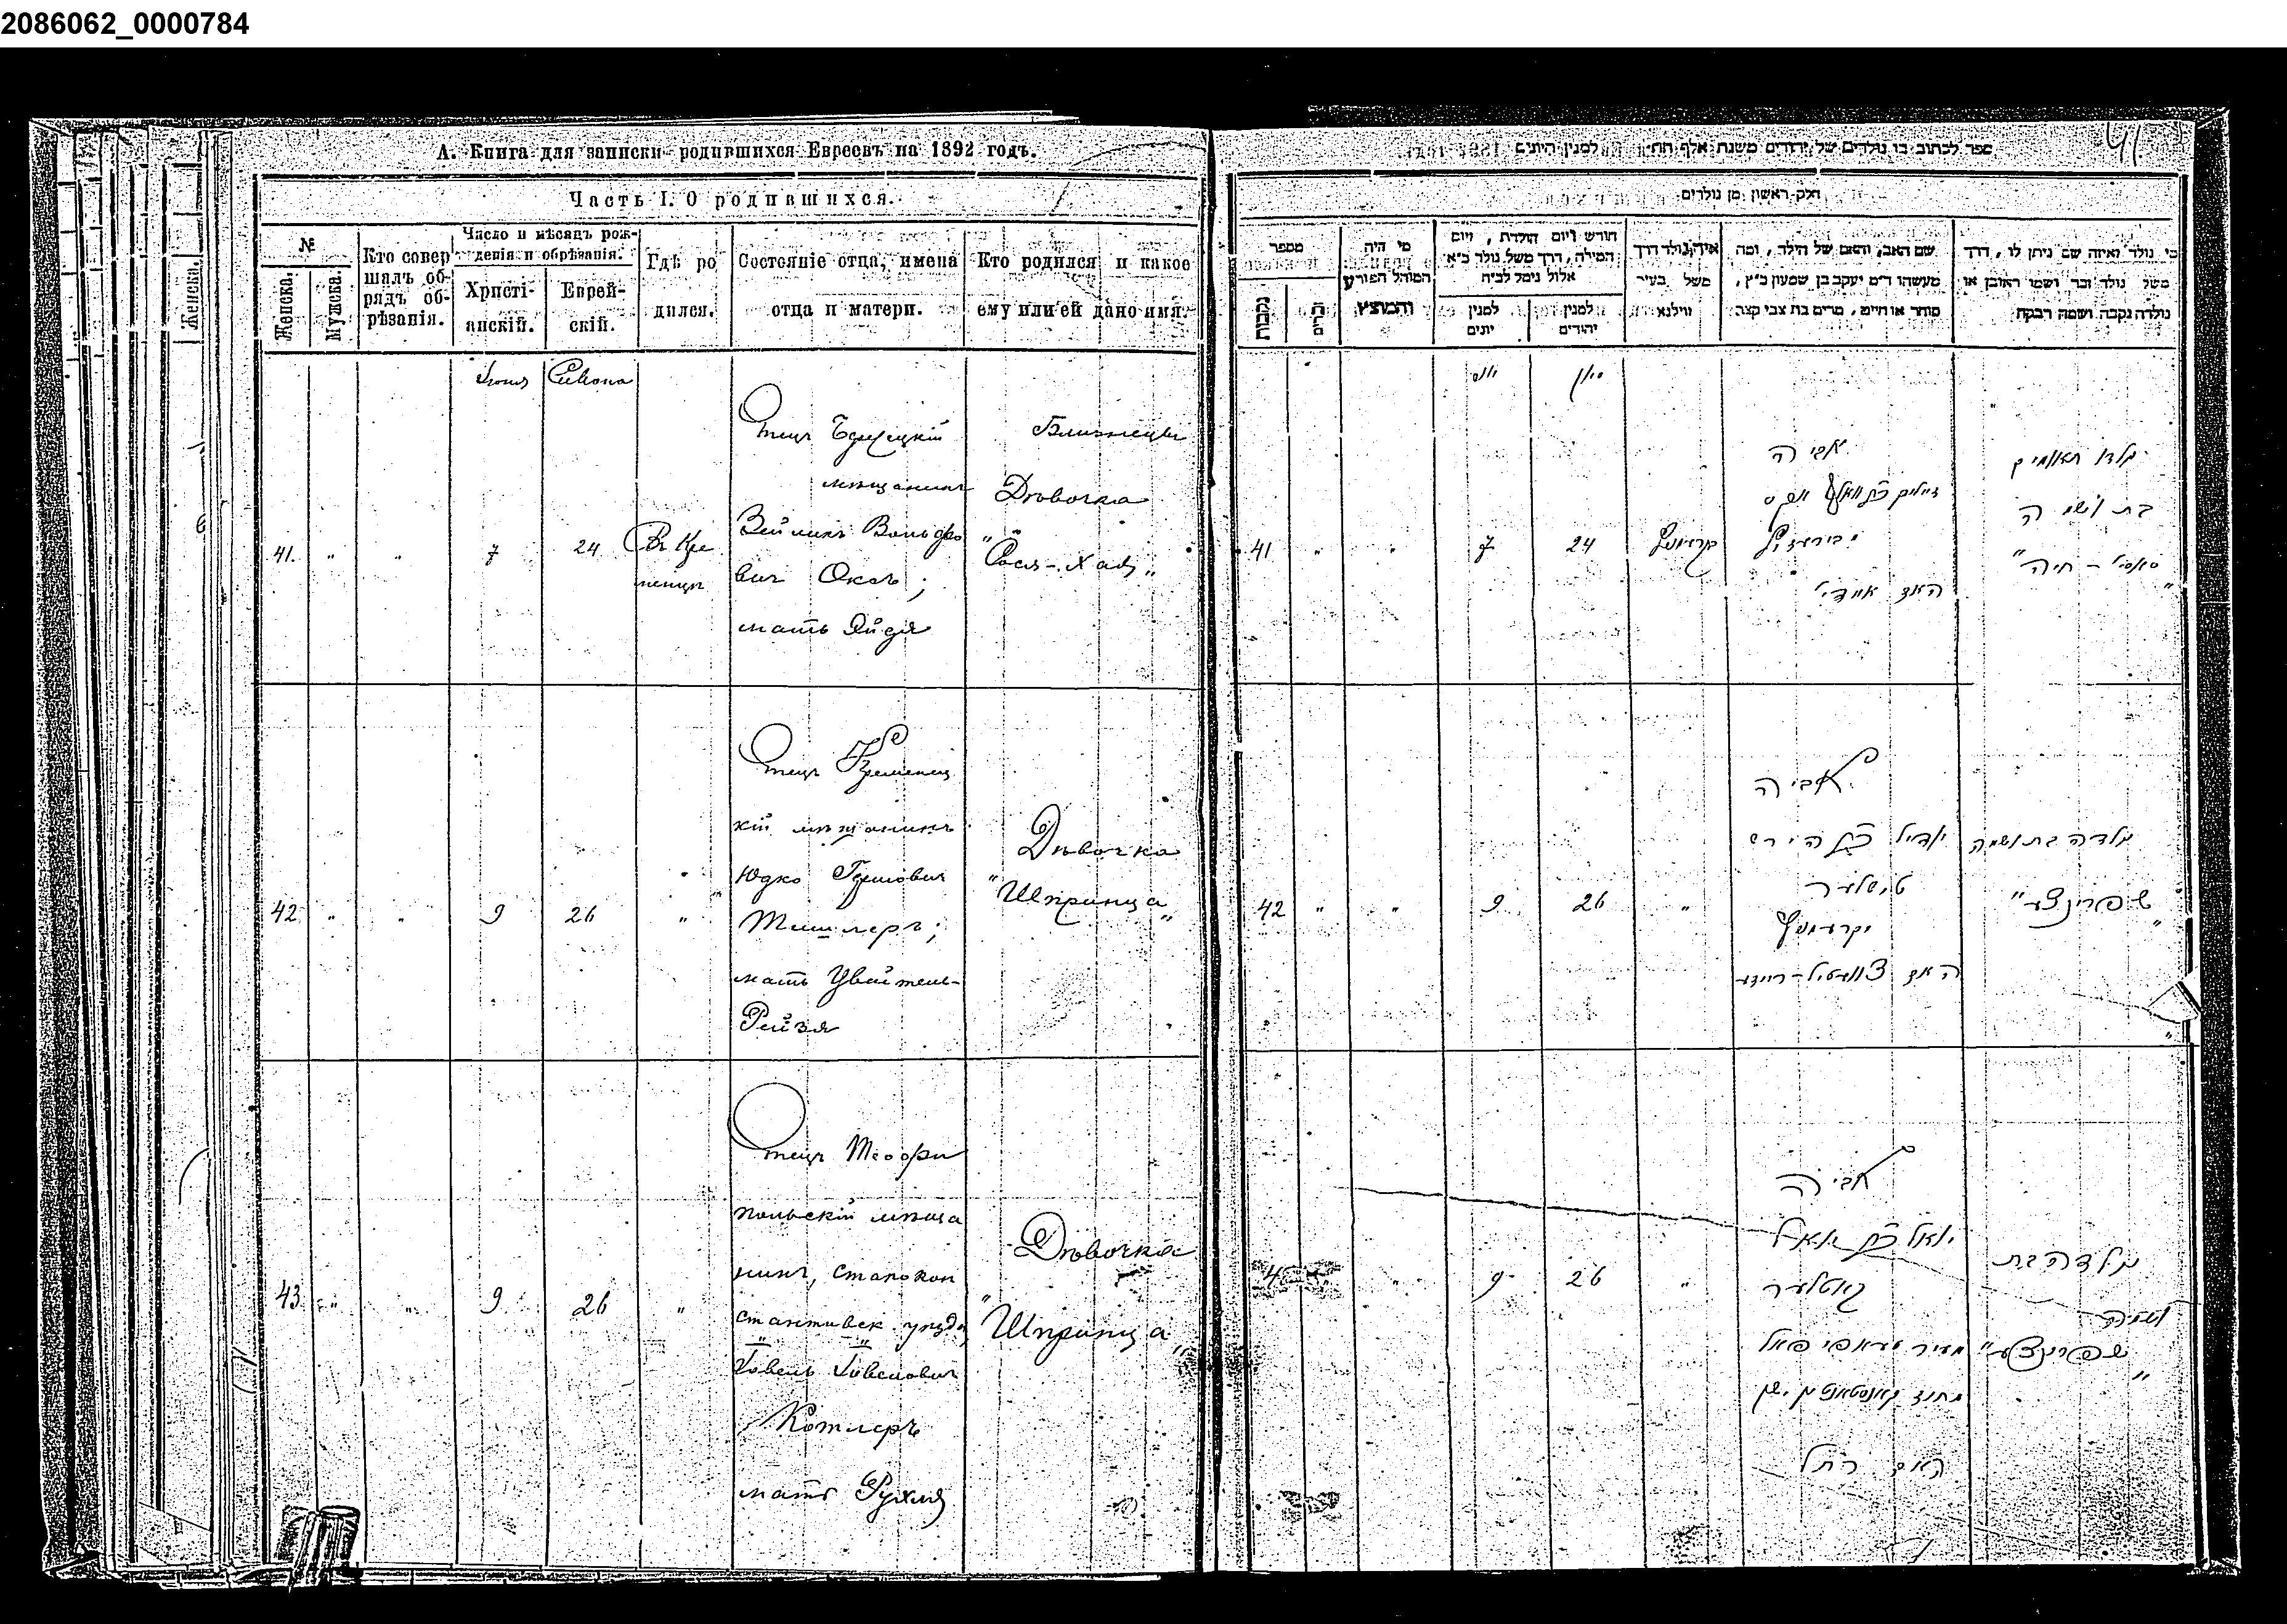 2086062_0000784
А. Книга для записки родившихся Евреевъ на 1892 годъ.
Часть I. О родившихся.
№
Женска.
Мужска.
Кто совер
шалъ об-
рядъ об-
рѣзанія.
Число и мѣсяцъ рож-
денія и обрѣзанія.
Христі-
анскій.
Еврей-
скій.
Гдѣ ро
дился.
Состояніе отца, имена
отца и матери.
Кто родился и какое
ему или ей дано имя.
Женска.
Іюня
Сивона
41. " " 7 24 Въ Кре
менцѣ
Отецъ
мѣщанинъ
Зейликъ Вольфо
вичъ Оксъ;
мать Яйдя
Близнецы
Дѣвочка
"Рося-Хая"
42 " " 9 26 "
Отецъ Кременец
кій мѣщанинъ
Юдко Гершовичъ
Тишлеръ;
мать Цвейтель-
Рейзя
Дѣвочка
"Шпринца"
43 " " 9 26 "
Отецъ Теофи
польскій мѣща
нинъ, старокон
стантинвск. уѣзда
Іовель Іовеловичъ
Котлеръ
мать Рухля
Дѣвочка
"Шпринца"
41
ספר לכתוב בו נולדים של יהודים משנת אלף תת למנין היונים
חלק ראשון מן נולדים
מספר
נקבות
זכרים
מי היה
המוהל הפורע
והמוצץ
חודש ויום הולדת, ויום
המילה, דרך משל נולד כ״א
אלול נימל לכ״ח
למנין
יונים
למנין
יהודים
איה נולד דרך
משל בעיר
ווילנא
שם האב, והאם של הילד, ומה
מעשהו ד״מ יעקב בן שמעון כ״ץ,
סוחר או חייט, מרים בת צבי קצב
מי נולד ואיזה שם ניתן לו, דרך
משל נולד זכר ושמו ראובן או
נולדה נקבה ושמה רבקה
יוני
סיון
41 " " 7 24 קרעמניץ
אביה
האם איידי
נולדו תאומים
בת ושמה
חיה"
42 " " 9 26 "
אביה
יודיל בן הירש
טישלער
מקרעמניץ
האם צווייטיל-רייזע
נולדה בת ושמה
"שפרינצע"
4 " 9 26 "
אביה
יואל בן יואל
קאטלער
מעיר טעאפיפאל
האם רחל
נולדה בת
ושמה
"שפרינצע"